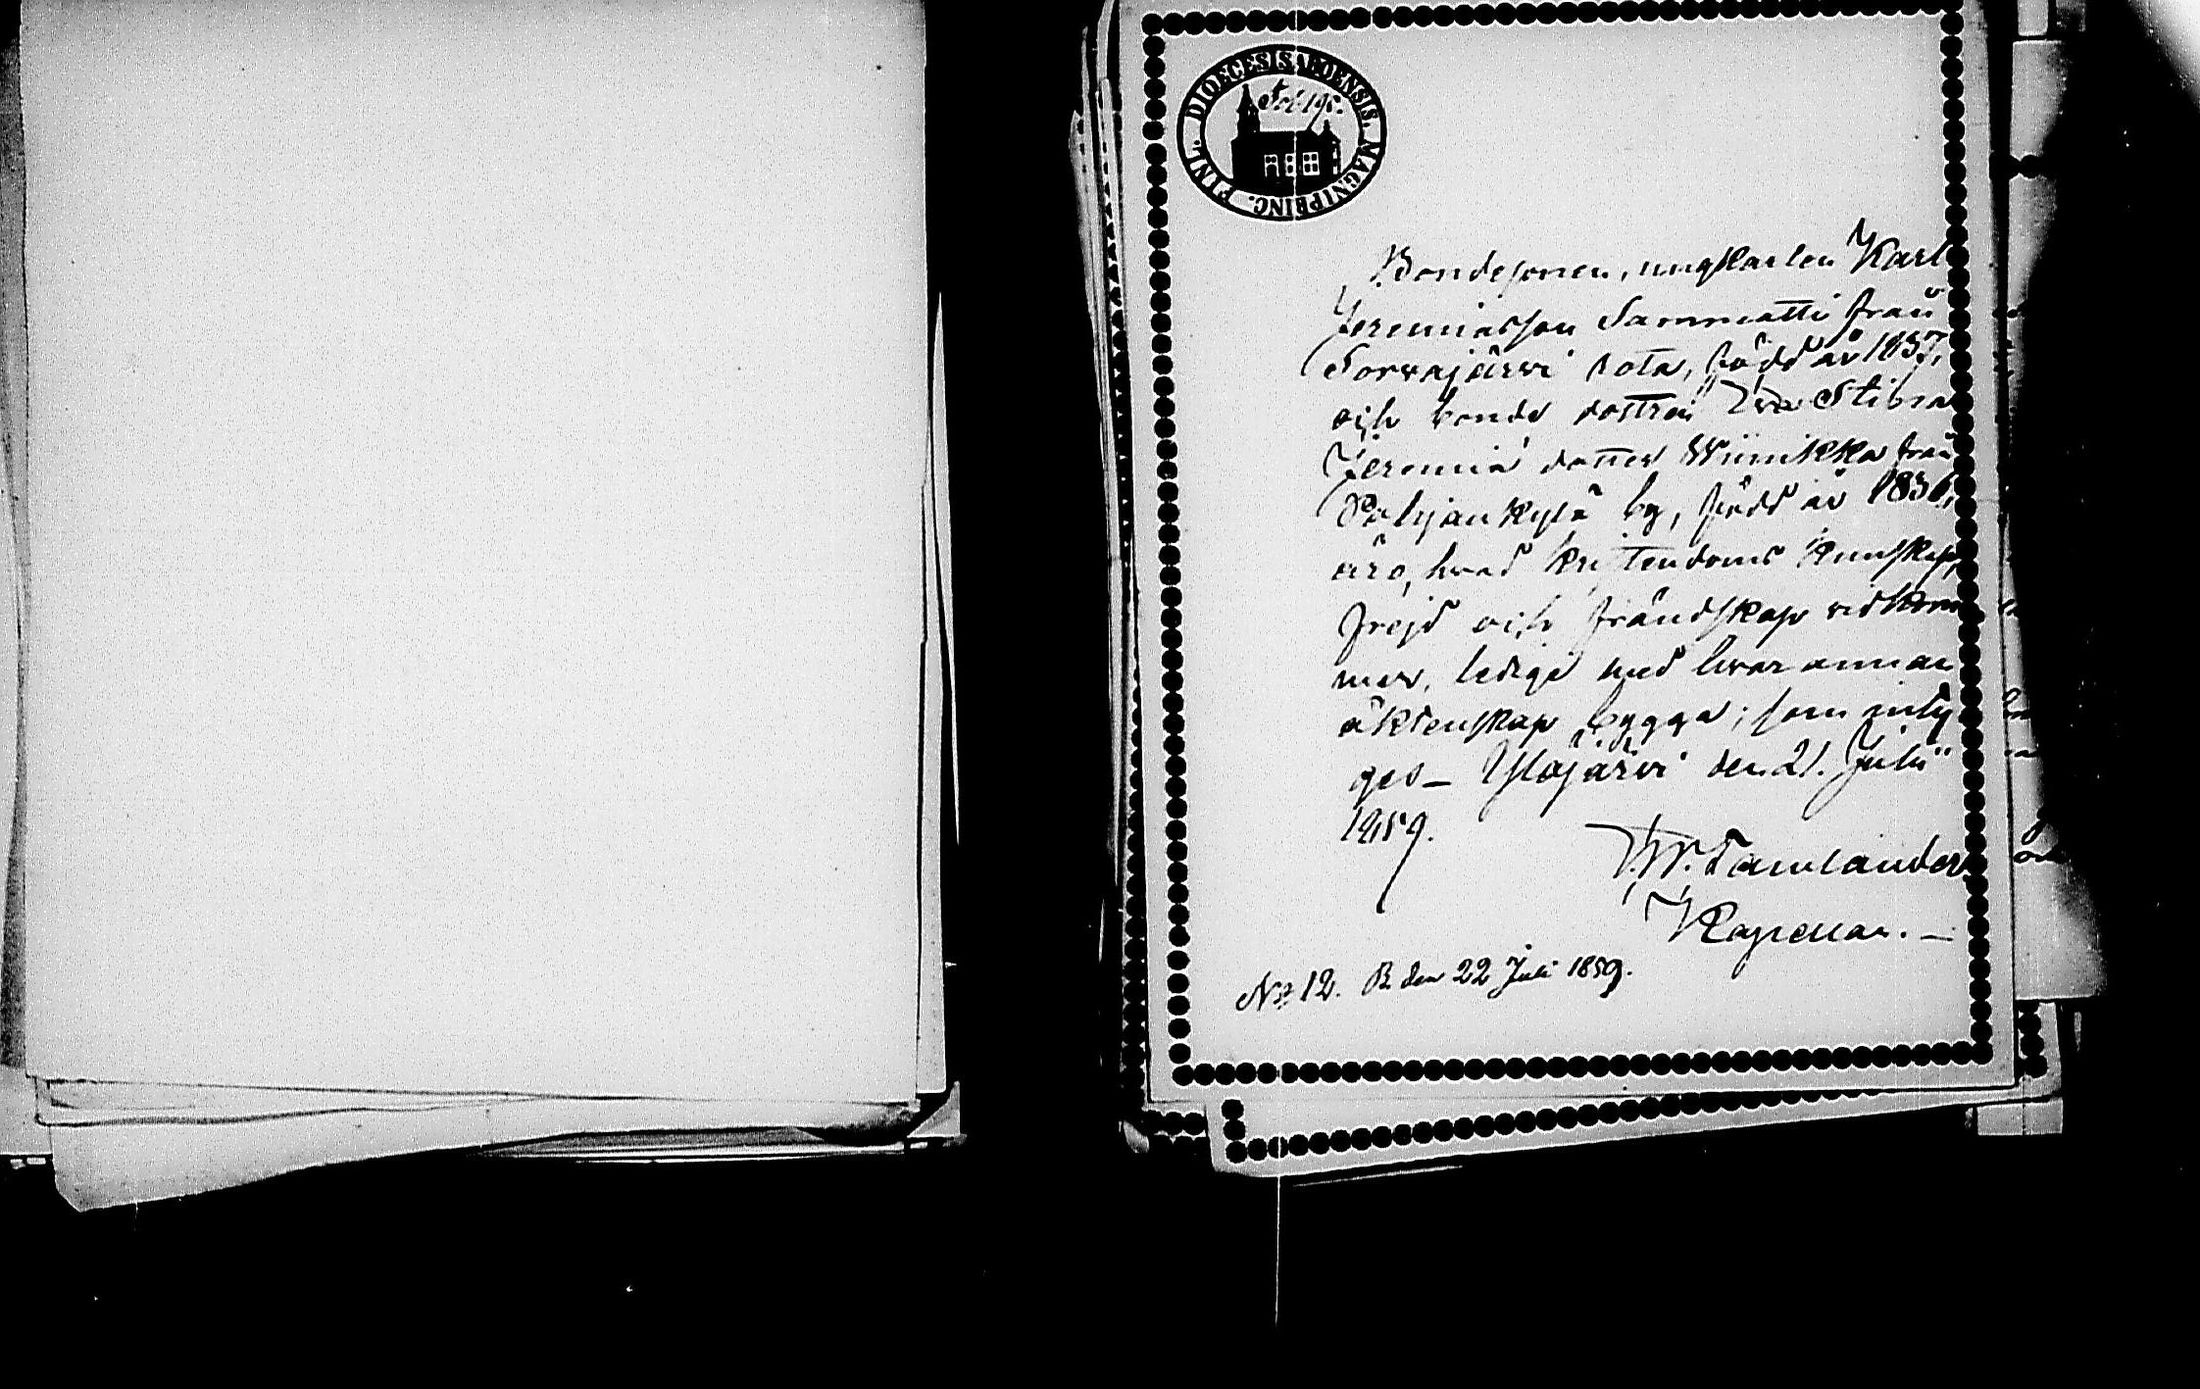 DIOECESIS ABOENSIS. MAGNI PRINC. FINL.
Fol 196.
Bondesonen, ungkarlen Karl
Jeremiasson Sammatti från
Sorvajärvi rota, född år 1837,
och bonde dottren Eva Stina
Jeremiä dotter Wiinikka från
Pohjankylä by, född år 1836,
äro, hvad kristendoms kunskap,
frejd och frändskap vidkom
mer, ledige med hvarannan
äktenskap bygga; som inty
gas_ Ylöjärvi den 21. Julii
1859.
Kapellan. _
No 12. B den 22 Juli 1859.